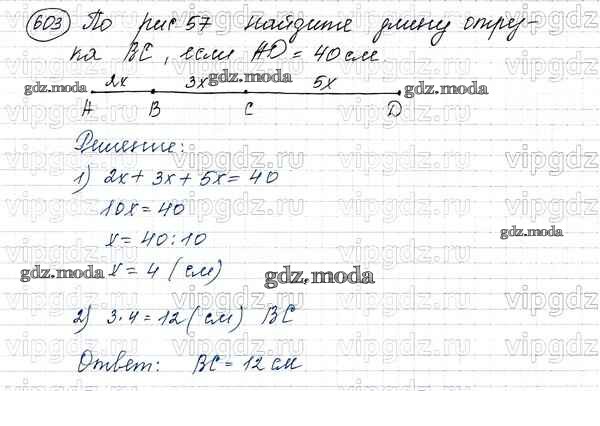 603 По рис 57 найдите длину отре-
ка BC, если AD = 40 см.
2x 3x 5x
A B C D
Решение:
1) 2x + 3x + 5x = 40
10x = 40
x = 40 : 10
x = 4 (см)
2) 3·4 = 12 (см) BC
Ответ: BC = 12 см
gdz.moda
gdz.moda
gdz.moda
gdz.moda
gdz.moda
gdz.moda
vipgdz.ru